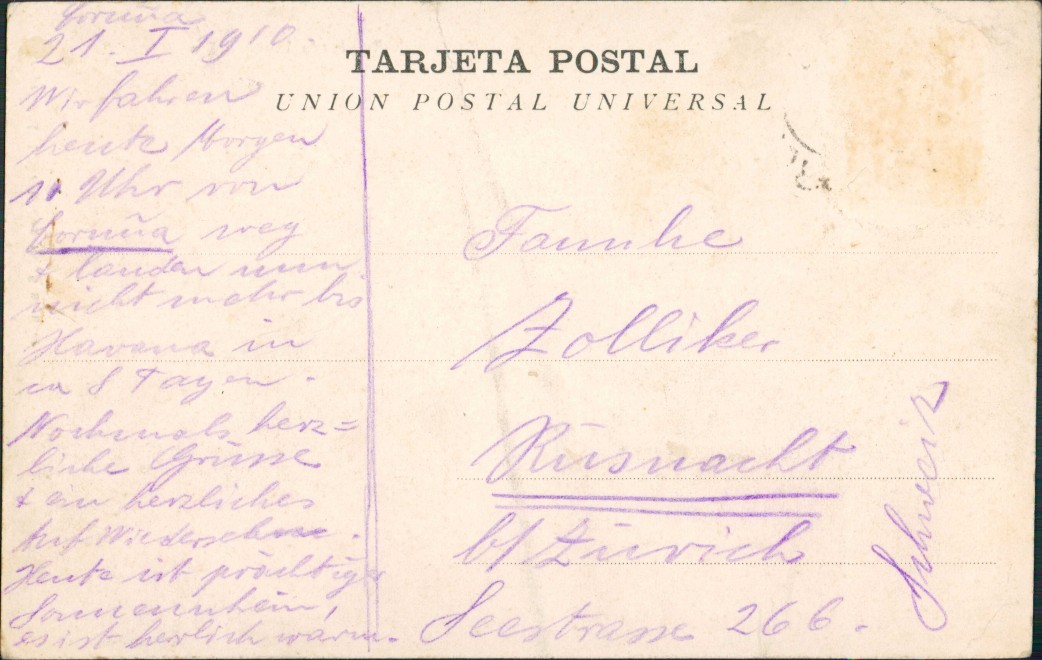 Coruña
21. I 1910.
Wir fahren
heute Morgen
11 Uhr von
Coruña weg
& landen nun
nicht mehr bis
Havana in
ca 8 Tagen.
Nochmals herz=
liche Grüsse
& ein herzliches
Auf Wiedersehen.
Heute ist prächtiger
Sonnenschein,
es ist herrlich warm.
TARJETA POSTAL
UNION POSTAL UNIVERSAL
Familie
Zolliker
Küsnacht
b/ Zürich
Seestrasse 266.
Schweiz